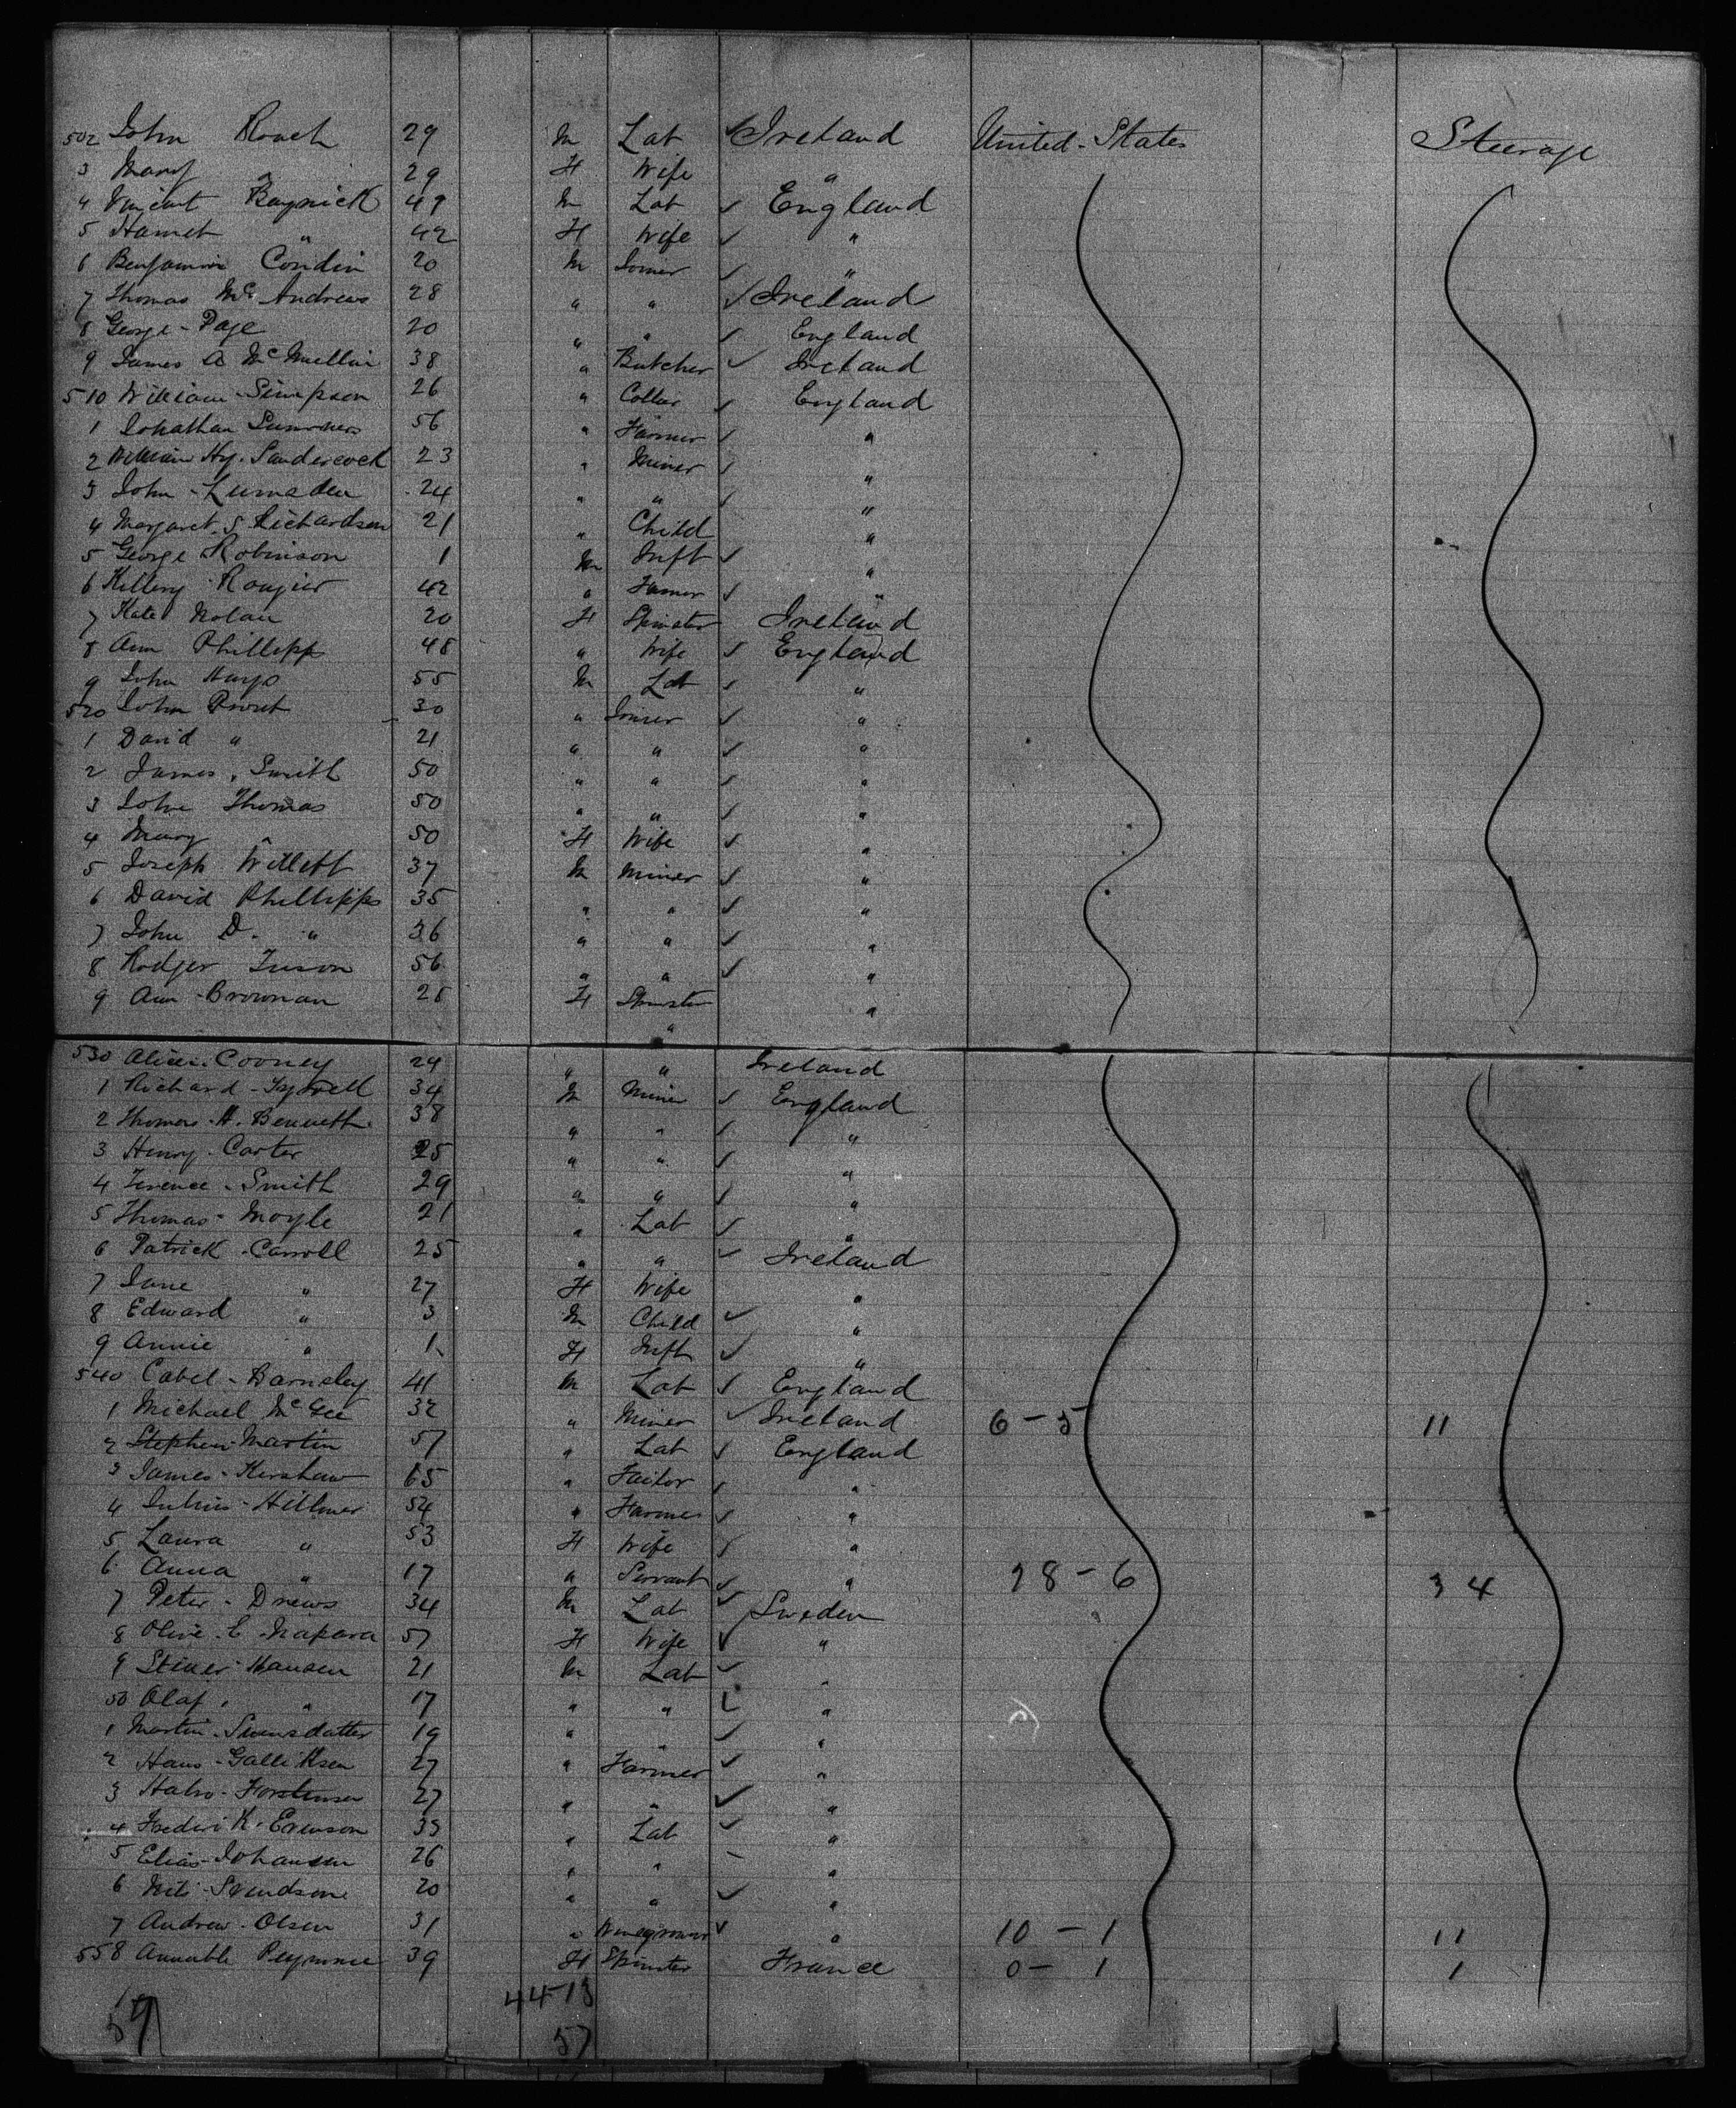 502 John Roach 29 M Lab ✓ Ireland United States Steerage
3 Mary " 29 F Wife "
4 Vincent Baynick 49 M Lab ✓ England
5 Harriet " 42 F Wife ✓ "
6 Benjamin Condin 20 M Joiner ✓ "
7 Thomas McAndrews 28 " " ✓ Ireland
8 George Page 20 " " ✓ England
9 James A McMullin 38 " Butcher ✓ Ireland
510 William Simpson 26 " Collier ✓ England
1 Jonathan Summers 56 " Farmer ✓ "
2 William Hy. Sandercock 23 " Miner ✓ "
3 John Lumsden 24 " " ✓ "
4 Margaret S Richardson 21 " Child "
5 George Robinson 1 M Inft ✓ "
6 Rougier 42 " Farmer ✓ "
7 Kate Nolan 20 F Spinster Ireland
8 Ann Phillipps 48 " Wife ✓ England
9 John Hays 55 M Lab ✓ "
520 John Prout 30 " Joiner ✓ "
1 David " 21 " " ✓ "
2 James Smith 50 " " ✓ "
3 John Thomas 50 " " ✓ "
4 Mary " 50 F Wife ✓ "
5 Joseph Willett 37 M Miner ✓ "
6 David Phillipps 35 " " ✓ "
7 John D. " 36 " " ✓ "
8 Rodger Tuson 56 " " ✓ "
9 Ann Brownan 25 F Spinster "
"
530 Alice Cooney 24 " " Ireland
1 Richard Tyrrell 34 M Miner ✓ England
2 Thomas H. Bennett 38 " " ✓ "
3 Henry Carter 25 " " ✓ "
4 Terence Smith 29 " " ✓ "
5 Thomas Moyle 21 " Lab ✓ "
6 Patrick Carroll 25 " " ✓ Ireland
7 Jane " 27 F Wife "
8 Edward " 3 M Child ✓ "
9 Annie " 1 F Inft ✓ "
540 Cabel Barnsley 41 M Lab ✓ England
1 Michael McGee 32 " Miner ✓ Ireland 6 - 5 11
2 Stephen Martin 57 " Lab ✓ England
3 James Kershaw 65 " Tailor ✓ "
4 Julius Hillmer 54 " Farmer ✓ "
5 Laura " 53 F Wife ✓ "
6 Anna " 17 " Servant ✓ " 28 - 6 34
7 Peter Drews 34 M Lab ✓ Sweden
8 Olive C Napara 57 F Wife ✓ "
9 Hansen 21 M Lab ✓ "
50 Olaf " 17 " " ✓ "
1 Martin Svensdatter 19 " " ✓ "
2 Hans Galliksen 27 " Farmer ✓ "
3 Halvo Torstensen 27 " " ✓ "
4 Frederik Evenson 33 " Lab ✓ "
5 Elias Johansen 26 " " - "
6 Nils Svendson 20 " " ✓ "
7 Andrew Olsen 31 " ✓ " 10 - 1 11
558 39 F Spinster France 0 - 1 1
44-13
57 57